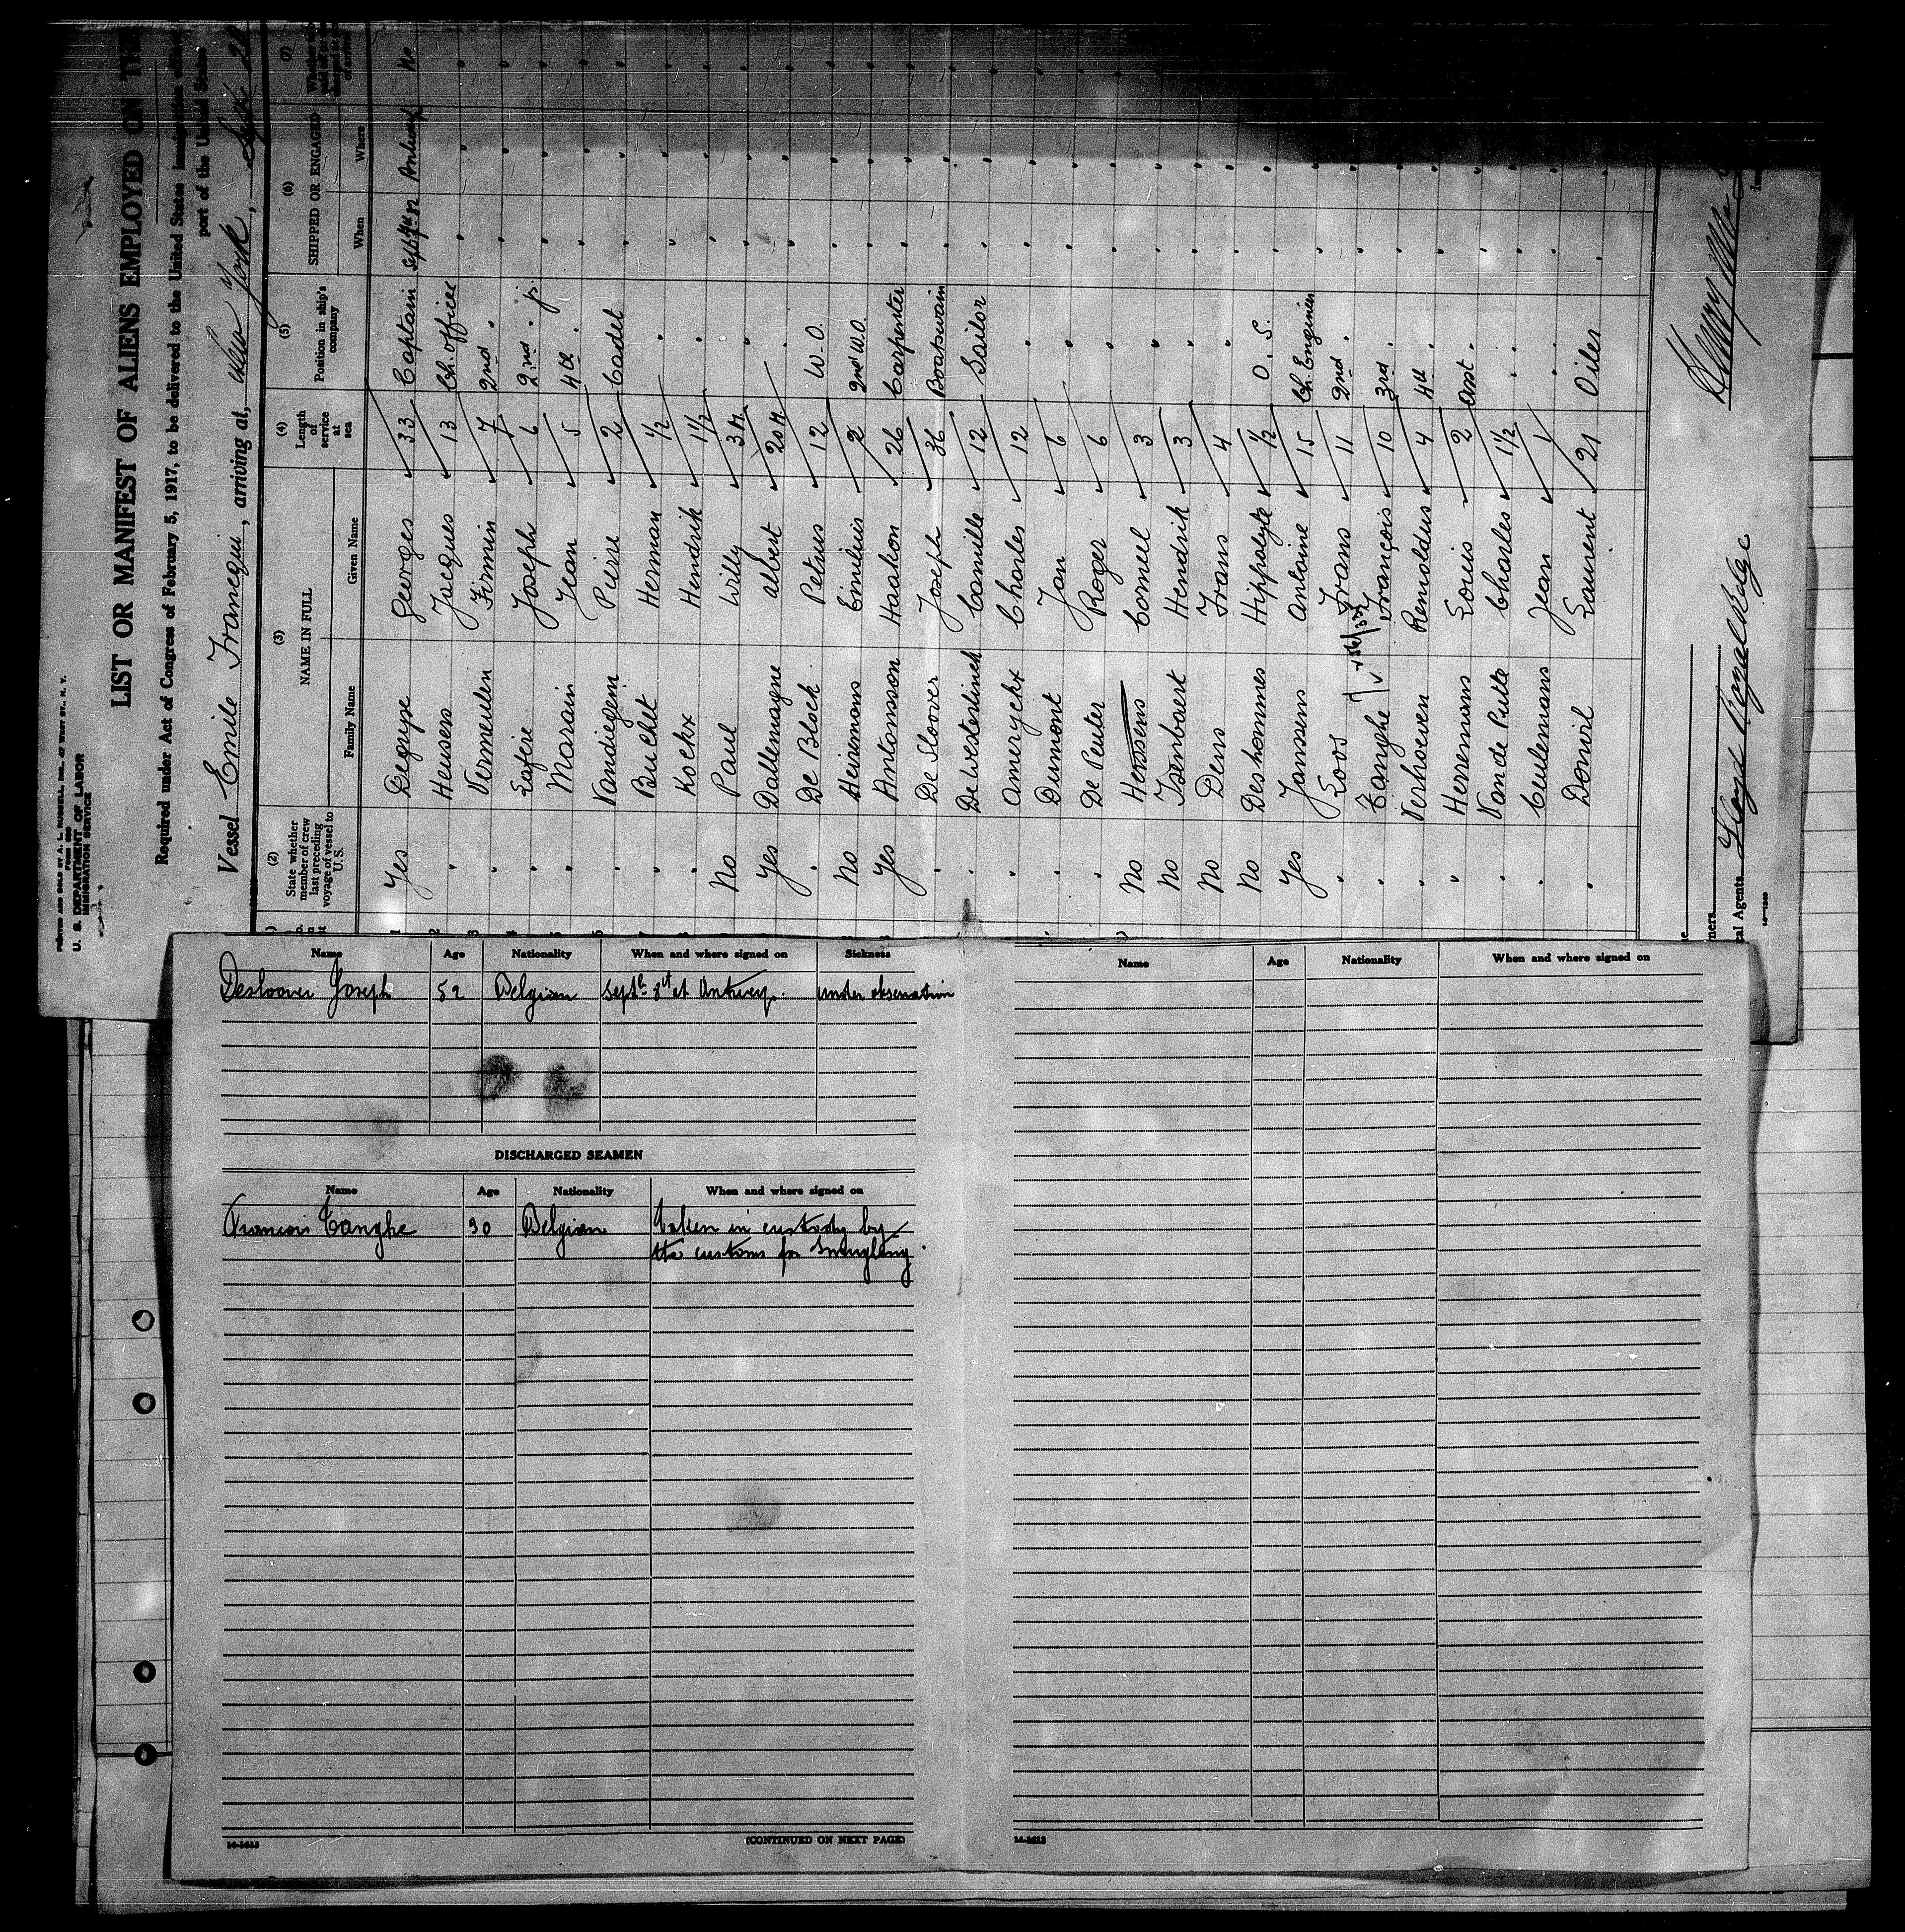 PRINTED AND SOLD BY A. L. RUSSELL, INC., 47 WEST ST., N. Y.
U. S. DEPARTMENT OF LABOR
IMMIGRATION SERVICE
LIST OR MANIFEST OF ALIENS EMPLOYED ON THE
Required under Act of Congress of February 5, 1917, to be delivered to the United States immigration
part of the United States
Vessel Emile Francqui, arriving at, New York, Sept
(2) (3) (4) (5) (6) (7)
State whether member of crew last preceding voyage of vessel to U. S. NAME IN FULL Length of service at sea Position in ship's company SHIPPED OR ENGAGED
Family Name Given Name When Where
1 Yes Degrype Georges 33 Captain Sept 32 Antwerp No
2 " Heusers Jacques 13 Ch. officer " " "
3 " Vermeulen Firmin 7 2nd " " " "
4 " Lafère Joseph 6 2nd " jr " " "
5 " Marain Jean 5 4th " " " "
6 " Vandiegem Pierre 2 Cadet " " "
" Buchet Herman 1/2 " " " "
" Kockx Hendrik 1 1/2 " " " "
No Paul Willy 3 M " " " "
Yes Dallemagne Albert 20 M " " " "
" De Block Petrus 12 W.O. " " "
No Heiremans Emilius 2 2nd W.O. " " "
Yes Antonsson Haakon 26 Carpenter " " "
" De Sloover Joseph 36 Boatswain " " "
" De Westerlinck Camille 12 Sailor " " "
" Ameryckx Charles 12 " " " "
" Dumont Jan 6 " " " "
" De Peuter Roger 6 " " " "
No Henssens Corneel 3 " " " "
No Isenbaert Hendrik 3 " " " "
No Dens Frans 4 " " " "
No Deshommes Hippolyte 1/2 O. S. " " "
Yes Janssens Antoine 15 Ch. Engineer " " "
" Loos Frans 11 2nd " " " "
" Tanghe François 10 3rd " " " "
" Verhoeven Renoldus 4 4th " " " "
" Herremans Louis 2 asst " " " "
" Van de Putte Charles 1 1/2 " " " "
" Ceulemans Jean 1 " " " "
" Donvil Laurent 21 Oiler " " "
Agents Lloyd Royal Belge
Name Age Nationality When and where signed on Sickness
Desloover Joseph 52 Belgian Septb 8st at Antwerp. under observation
DISCHARGED SEAMEN
Name Age Nationality When and where signed on
Francois Tanghe 30 Belgian taken in custody by
the customs for smugling.
(CONTINUED ON NEXT PAGE)
Name Age Nationality When and where signed on